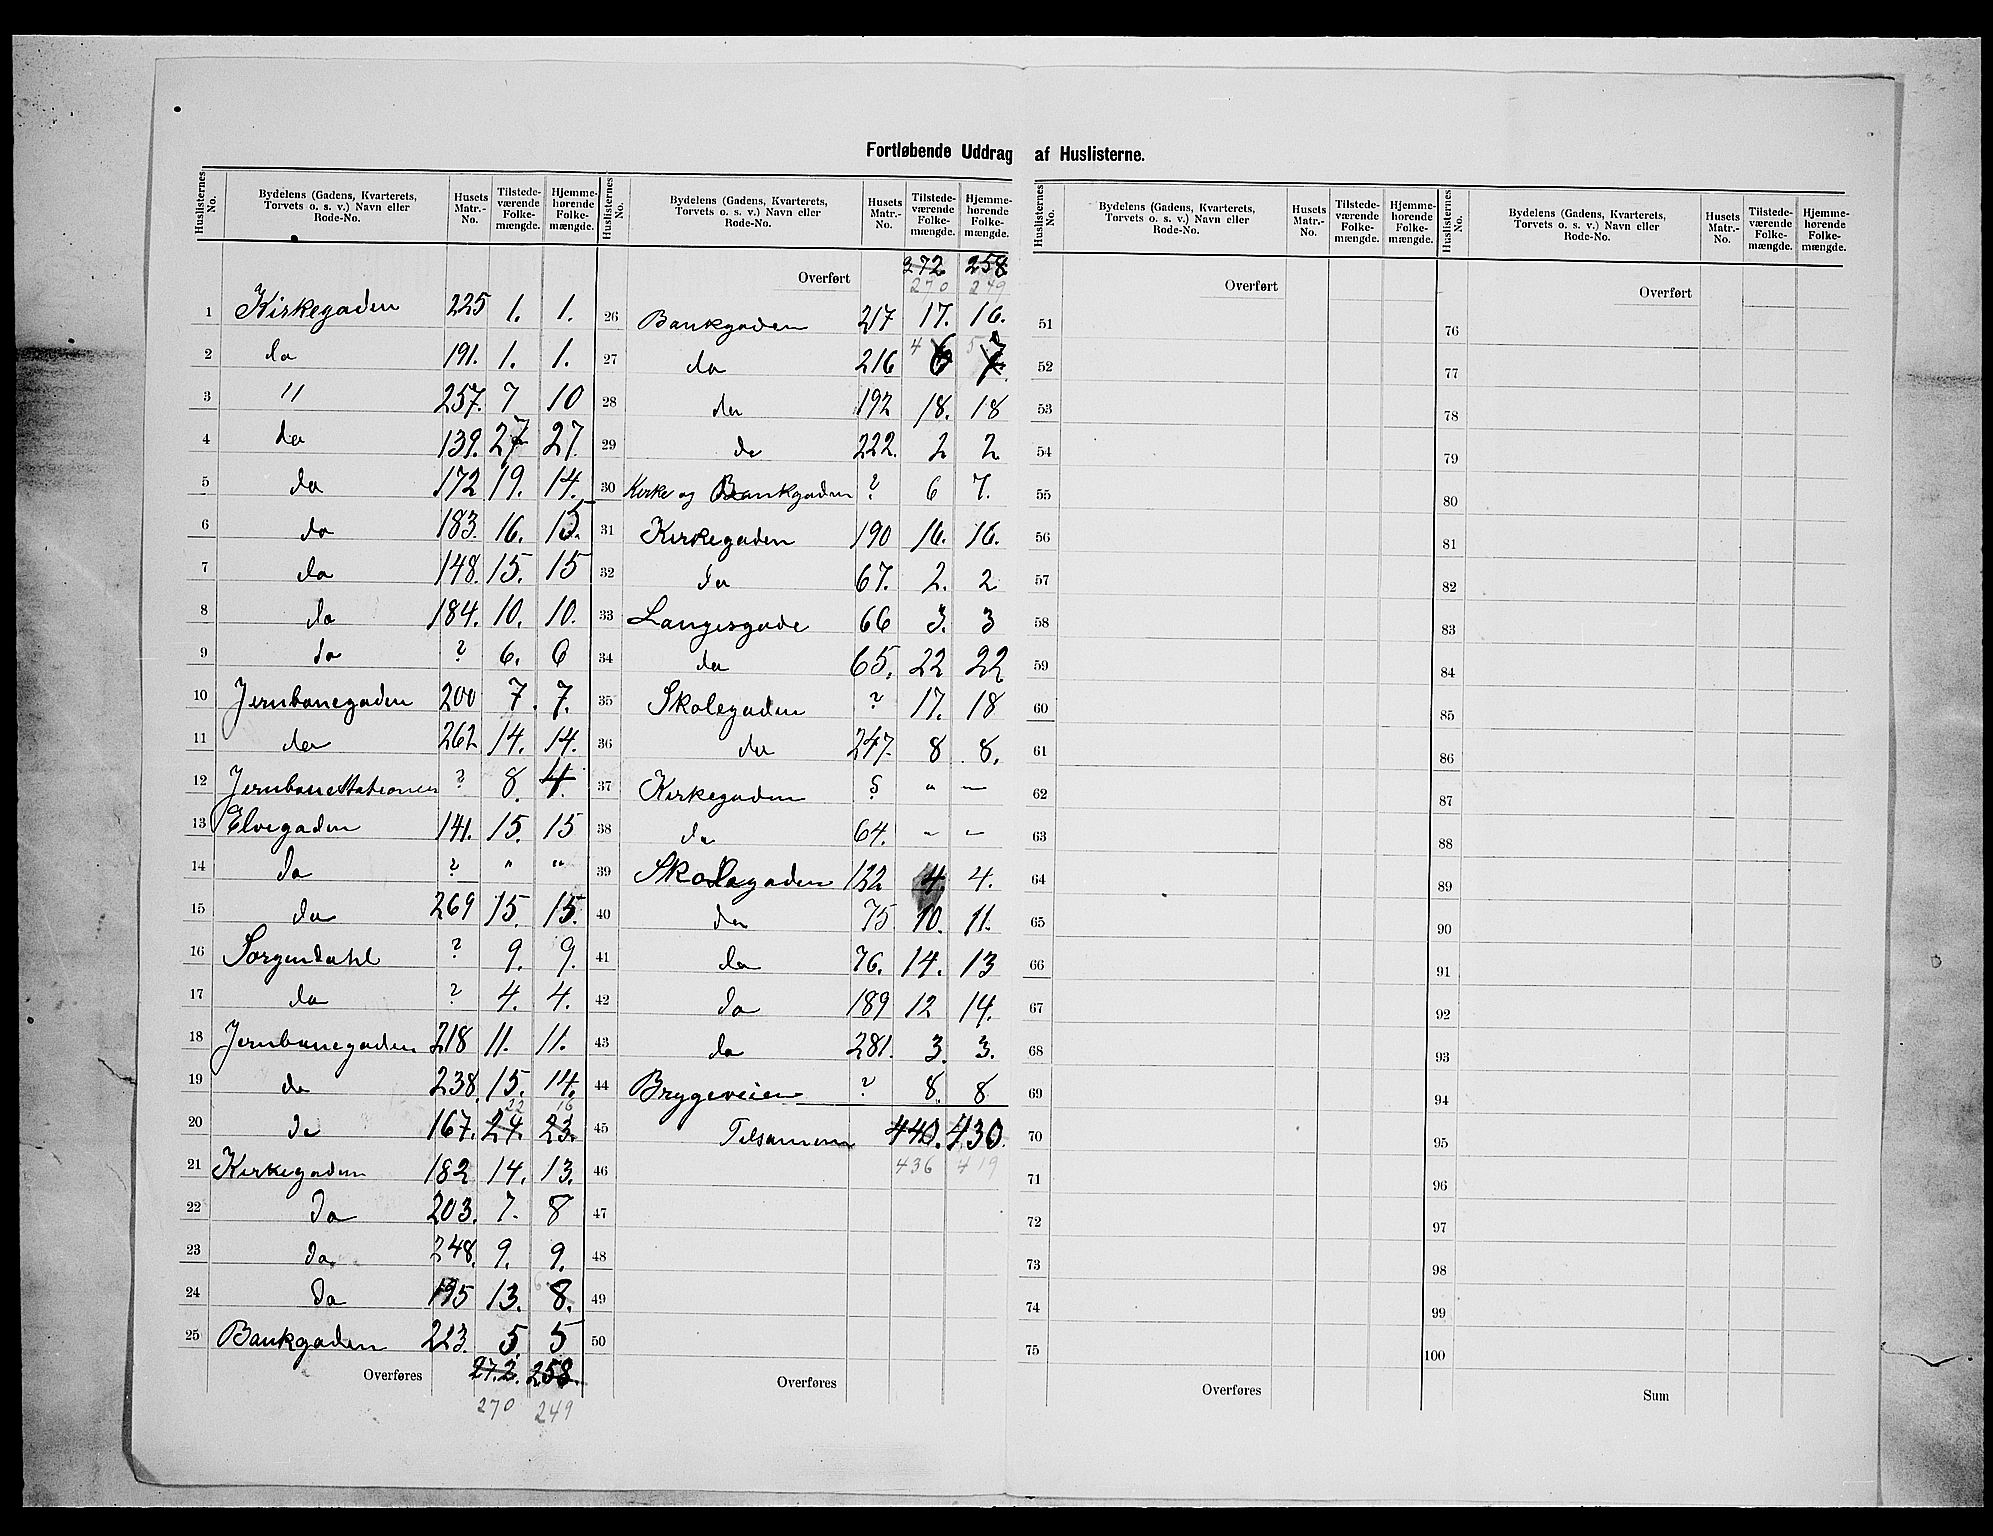 Fortløbende Uddrag af Huslisterne.
Huslisternes No. | Bydelens (Gadens, Kvarterets, Torvets o. s. v.) Navn eller Rode-No. | Husets Matr.-No. | Tilstede-værende Folke-mængde. | Hjemme-hørende Folke-mængde.
1 Kirkegaden 225 1. 1.
2 do 191. 1. 1.
3 " 257. 7 10
4 do 139. 27 27.
5 do 172 19. 14.
6 do 183. 16. 15.
7 do 148. 15. 15
8 do 184. 10. 10.
9 do ? 6. 6
10 Jernbanegaden 200 7. 7.
11 do 262 14. 14.
12 Jernbanestationen ? 8. 4.
13 Elvegaden 141. 15. 15
14 do ? " "
15 do 269 15. 15.
16 Sorgendahl ? 9. 9.
17 do ? 4. 4.
18 Jernbanegaden 218 11. 11.
19 do 238. 15. 14.
22 16
20 do 167. 24. 23.
21 Kirkegaden 182 14. 13.
22 do 203. 7. 8
23 do 248. 9. 9.
24 do 195 13. 8.
25 Bankgaden 223. 5. 5
Overføres 272. 258.
270 249
Huslisternes No. | Bydelens (Gadens, Kvarterets, Torvets o. s. v.) Navn eller Rode-No. | Husets Matr.-No. | Tilstede-værende Folke-mængde. | Hjemme-hørende Folke-mængde.
Overført 272 258
270 249
26 Bankgaden 217 17. 16.
27 do 216 4 6 5 7
28 do 192 18. 18
29 do 222. 2 2
30 Kirke og Bankgaden ? 6 7.
31 Kirkegaden 190 16. 16.
32 do 67. 2. 2
33 Langesgade 66 3. 3
34 do 65. 22 22
35 Skolegaden ? 17. 18
36 do 247. 8 8.
37 Kirkegaden ? " —
38 do 64. - -
39 Skolegaden 122 4 4.
40 do 75 10. 11.
41 do 76. 14. 13
42 do 189 12 14.
43 do 281. 3. 3.
44 Bryggeveien ? 8. 8
45 Tilsammen 440. 430.
46 436 419
47
48
49
50
Overføres
Huslisternes No. | Bydelens (Gadens, Kvarterets, Torvets o. s. v.) Navn eller Rode-No. | Husets Matr.-No. | Tilstede-værende Folke-mængde. | Hjemme-hørende Folke-mængde.
Overført
51
52
53
54
55
56
57
58
59
60
61
62
63
64
65
66
67
68
69
70
71
72
73
74
75
Overføres
Huslisternes No. | Bydelens (Gadens, Kvarterets, Torvets o. s. v.) Navn eller Rode-No. | Husets Matr.-No. | Tilstede-værende Folke-mængde. | Hjemme-hørende Folke-mængde.
Overført
76
77
78
79
80
81
82
83
84
85
86
87
88
89
90
91
92
93
94
95
96
97
98
99
100
Sum